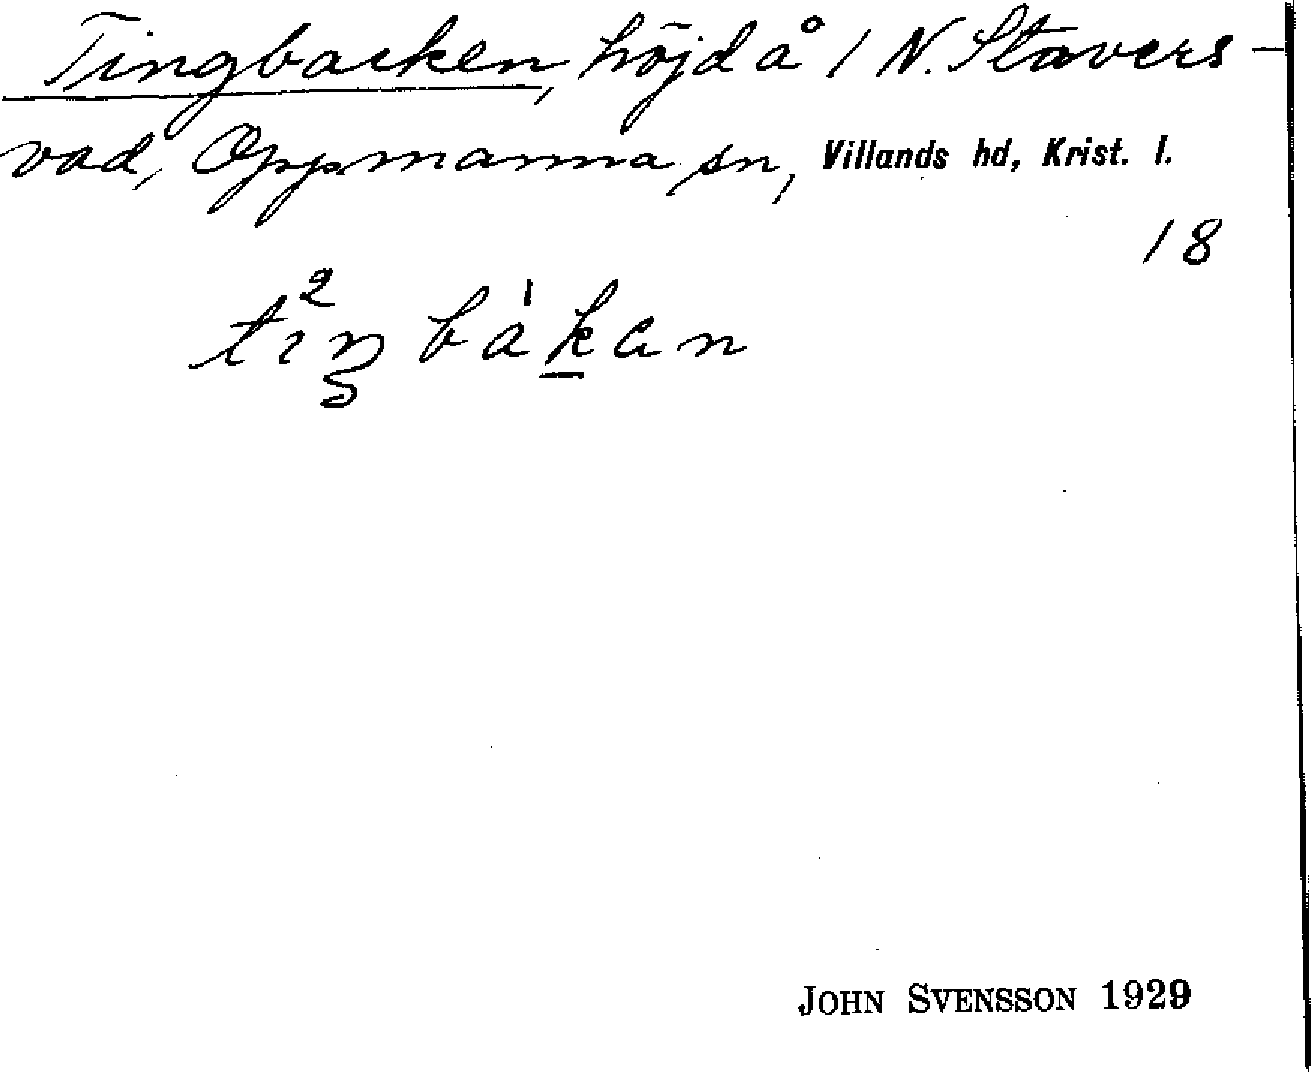 Tingbacken, höjd å 1 N. Stavers-
vad, Oppmanna sn, Villands hd, Krist. l.
18
JOHN SVENSSON 1929